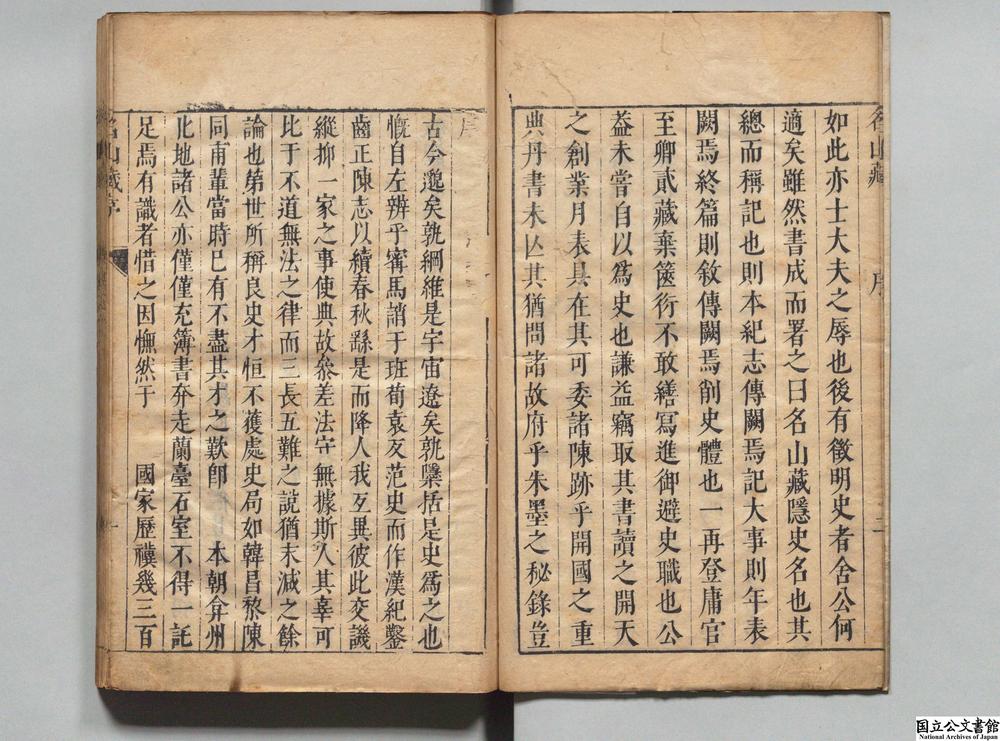 名山藏
序
二
如此亦士大夫之辱也後有徵明史者舍公何
適矣雖然書成而署之曰名山藏隱史名也其
總而稱記也則本紀志傳闕焉記大事則年表
闕焉終篇則敘傳闕焉削史體也一再登庸官
至卿貳藏棄篋衍不敢繕寫進御避史職也公
葢未嘗自以爲史也謙益竊取其書讀之開天
之創業月表具在其可委諸陳跡乎開國之重
典丹書未亾其猶問諸故府乎朱墨之秘錄豈
序
古今邈矣孰綱維是宇宙遼矣孰櫽括是史爲之也
慨自左辨乎甯馬誚于班荀袁攷范史而作漢紀鑿
齒正陳志以續春秋繇是而降人我互異彼此交譏
縱抑一家之事使典故叅差法守無據斯人其辜可
比于不道無法之律而三長五難之說猶末減之餘
論也第世所稱良史才恒不獲處史局如韓昌黎陳
同甫輩當時已有不盡其才之歎卽 本朝弇州
此地諸公亦僅僅充簿書奔走蘭臺石室不得一託
足焉有識者惜之因憮然于 國家歷禩幾三百
名山藏序
一
国立公文書館
National Archives of Japan